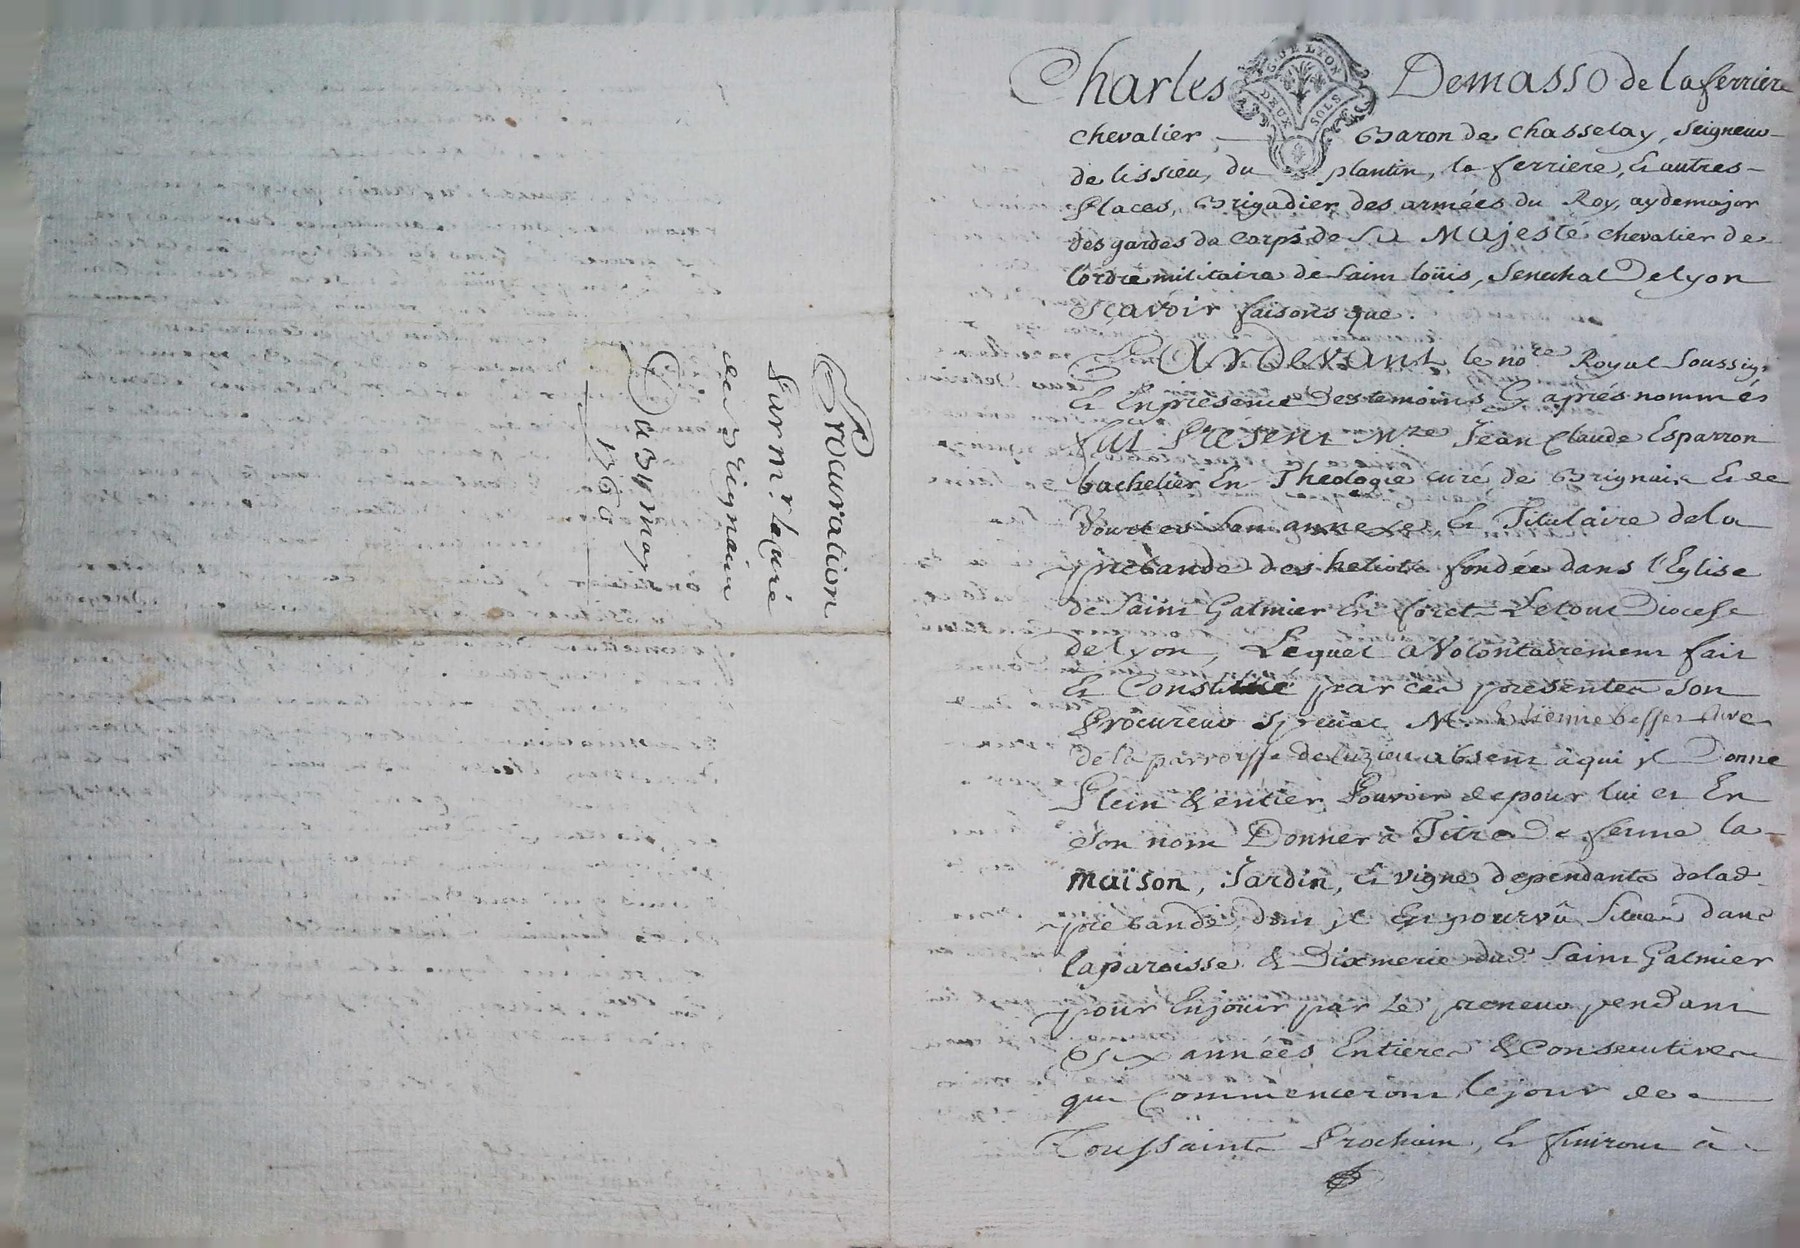 Procuration
Par mr. le Curé
de Brignain
Du 31 may
1760
G. DE LYON
DEUX SOLS
Charles Demasso de la ferriere
chevalier, Baron de chasselay, Seigneur
de lissieu, du plantin, la ferriere, & autres
Places, Brigadier des armées du Roy, aydemajor
des gardes da Corps de Sa Majesté chevalier de
l'ordre militaire de Saint loüis, Senechal De lyon
Sçavoir faisons que.
Pardevant le nore Royal Soussigé
& En presence Des temoins Cy après nommés
fut Present Mre Jean Claude Esparron
bachelier En Theologie curé de Brignais & de
Vourles Son annexe, & Titulaire de la
prebande des heliots fondée dans l'Eglise
de Saint Galmier En foret Le tout Diocese
de Lyon, Lequel a Volontairement fait
& Constitué par ces presentes Son
Procureur Special M. Etienne besson Curé
de la parroisse de luzieu absent à qui il Donne
Plein & entier Pouvoir de pour lui et En
Son nom Donner à Titre De ferme la
maïson, Jardin, & vigne dependants de lad.
prebande, dont il Est pourvû Situés dans
la paroisse & Dixmerie dud. Saint Galmier
pour En jouir par Le preneur pendant
Six années Entieres & Consecutives
qui Commenceront le jour de
Toussaints Prochain, & finiront à